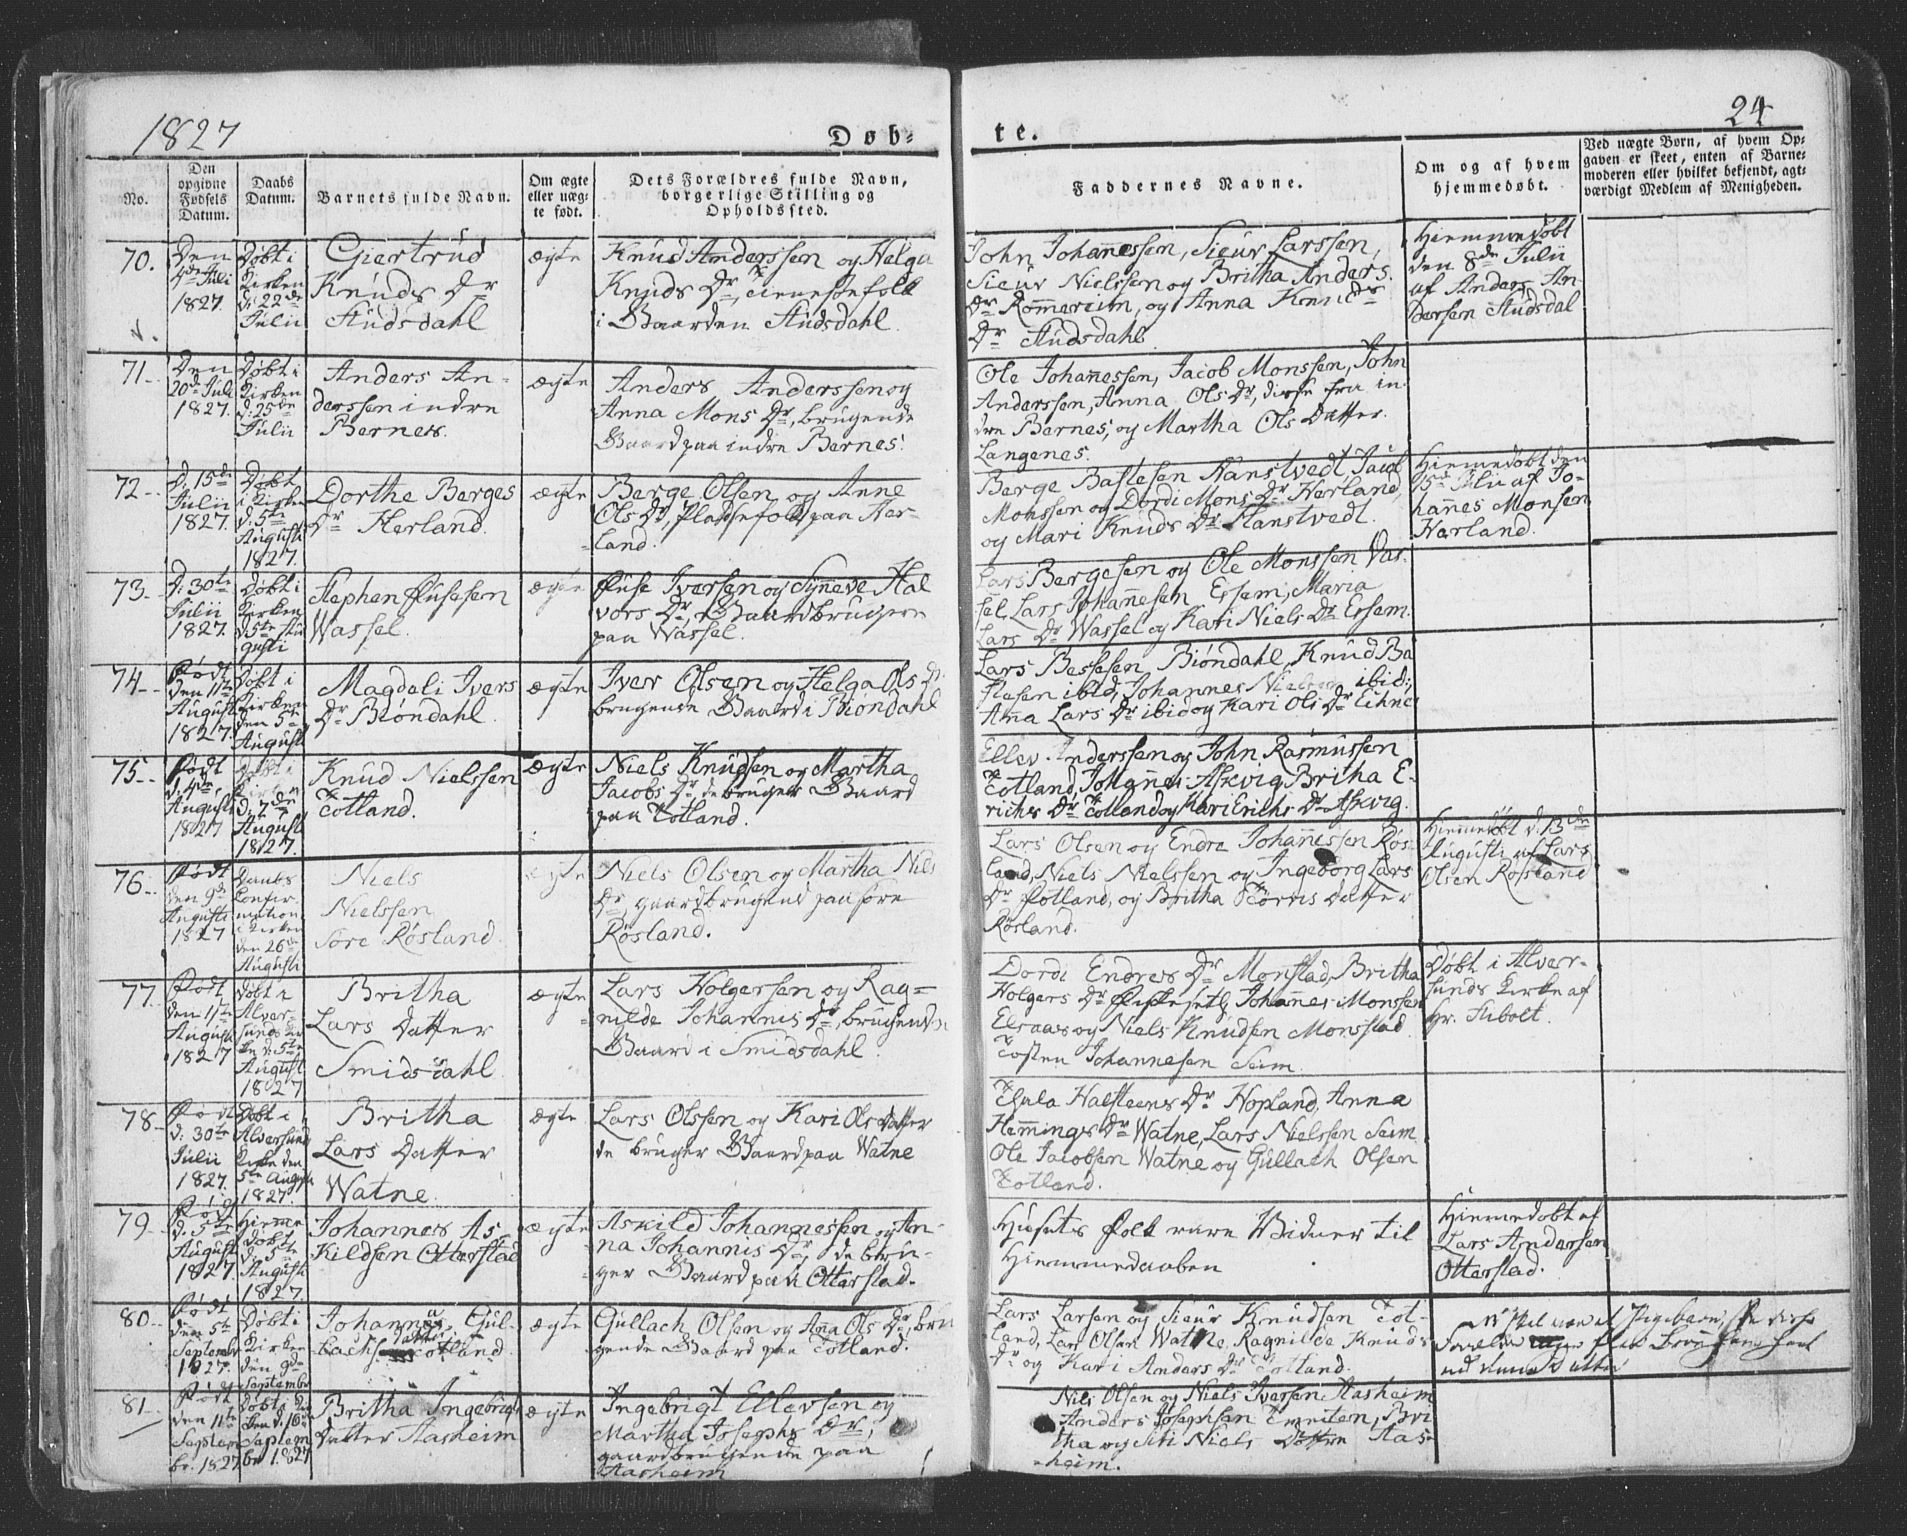 1827
Døb-
te.
24
No.
Den opgivne Fødsels Datum.
Daabs Datum.
Barnets fulde Navn.
Om ægte eller uæg-te født.
Dets Forældres fulde Navn, borgerlige Stilling og Opholdssted.
Faddernes Navne.
Om og af hvem hjemmedøbt.
Ved uægte Børn, af hvem Op-gaven er skeet, enten af Barne-moderen eller hvilket bekjendt, agt-værdigt Medlem af Menigheden.
70.
Den
4de Juli
1827.
Døbt i
Kirken
d: 22de
Julii
Giertrud
Knuds Dr
Studsdahl
ægte
Knud Anderssen og Helga
Knuds Dr, tienestefolk
i Gaarden Studsdahl.
John Johannessen, Sieur Larssen,
Sieur Nielssen og Britha Anders
Dr Rommereim, og Anna Knuds
Dr Studsdahl
Hiemmedøbt
den 8de Julii
af Anders An-
dersen Studsdal
71
Den
20de Juli
1827.
Døbt i
Kirken
d: 25de
Julii
Anders An-
derssen indre
Bernes.
ægte
Anders Anderssen og
Anna Mons Dr, brugende
Gaard paa indre Bernes.
Ole Johannessen, Jacob Monssen, John
Anderssen, Anna Ols Dr, disse fra in-
dre Bernes, og Martha Ols Datter
Langenes.
72
d: 15de
Julii
1827.
Døbt
i Kirken
d: 5te
Augusti
1827.
Dorthe Berges
Dr Herland.
ægte
Berge Olsen og Anne
Ols Dr, Pladsefolk paa Her-
land.
Berge Bastesen Hanstvedt, Jacob
Monssen og Dordi Mons Dr Herland,
og Mari Knuds Dr Hanstvedt.
Hiemmedøbt den
15de Julii af Jo-
hannes Monsen
Herland.
73
D: 30te
Julii
1827.
Døbt i
Kirken
d 5te Au
gusti
Stephen Fusesen
Wassel.
ægte
Fuse Iversen og Synneve Hal
vors Dr, Gaardbrugere
paa Wassel.
Lars Bergesen og Ole Monssen Vas-
sel, Lars Johannesen Essem, Maria
Lars Dr Wassel og Kari Niels Dr Essem.
74
Født
den 1ste
August
1827.
Døbt i
Kirken
den 5te
Augusti
Magdeli Ivers
Dr Biøndahl.
ægte
Iver Olsen og Helga Ols Dr
brugende Gaard i Biøndahl
Lars Bessesen, Biøndahl, Knud Ba
stesen ibid, Johannes Nielsen ibid;
Anna Lars Dr ibid og Kari Ols Dr Eihnes
75
Født
d: 4de
Augusti
1827
Døbt i
Kirken
d: 7de
Augusti
1827.
Knud Nielssen
Totland.
ægte
Niels Knudsen og Martha
Jacobs Dr de bruger Gaard
paa Totland.
Ellev Anderssen og John Rasmussen
Totland, Johannes Askvig, Britha E-
richs Dr Totland og Kari Erichs Dr Askvig.
76
Født
den 9de
Augusti
1827
Daabs
Confir-
mation
i Kirken
den 26de
Augusti
Niels
Nielssen
søre Røsland.
ægte
Niels Olsen og Martha Niels
Dr, gaardbrugend paa søre
Røsland.
Lars Olsen og Endre Johannessen Røs-
land, Niels Nielssen og Ingeborg Lars
Dr Totland, og Britha Tørris Datter
Røsland.
Hiemmedøbt d: 13de
Augusti af Lars
Olsen Røsland
77
Født
den 1ste
Augusti
1827
Døbt i
Alver-
sunds Kir-
ke d: 5te
August
1827
Britha
Lars Datter
Smidsdahl
ægte
Lars Holgersen og Rag-
nilde Johannis Dr, brugende
Gaard i Smidsdahl.
Dordi Endres Dr Monstad, Britha
Holgers Dr Fiskesetl, Johannes Monssen
Elsaas og Niels Knudsen Monsstad
Tosten Johannesen Seim.
Døbt i Alver-
sunds Kirke af
Hr. Stibolt.
78
Født
d: 30te
Julii
1827.
Døbt i
Alversund
Kirke den
5te August
1827.
Britha
Lars Datter
Watne.
ægte
Lars Olssen og Kari Ols datter
de bruger Gaard paa Watne
Thula Halsteens Dr Hopland, Anna
Hemmings Dr Watne, Lars Nielssen Seim
Ole Jacobsen Watne og Gullach Olsen
Totland.
79
Født
d: 5te
August
1827.
Hiemme
døbt
d: 5te
Augusti
1827.
Johannes As-
kildsen Otterstad
ægte
Askild Johannessen og An-
na Johannis Dr, de bru-
ger Gaard paa Otterstad.
Husets Folk vare Vidner til
Hiemmedaaben
Hiemmedøbt af
Lars Andersen
Otterstad.
80
Født
den 5te
Septembr
1827.
Døbt i
Kirken
den 9de
September
Johanna Gul-
lachs datter Totland
ægte
Gullach Olsen og Anna Ols Dr, bru
gende Gaard paa Totland.
Lars Larsen og Sieur Knudsen Tot-
land, Lars Olsen Watne, Ragnilde Knuds
Dr og Kari Anders Dr Totland.
81
Født
den 11te
Septem
br. 1827
Døbt i Kir
ken d: 16de
Septem
br 1827
Britha Ingebrigt
Datter Aasheim
ægte
Ingebrigt Ellevsen og
Martha Josephs Dr,
gaardbrugende paa
Aasheim
Nils Olsen og Niels Iversen Aasheim
Anders Josephsen Tveiten, Bri
tha og Siri Niels Døttre Aas-
heim.